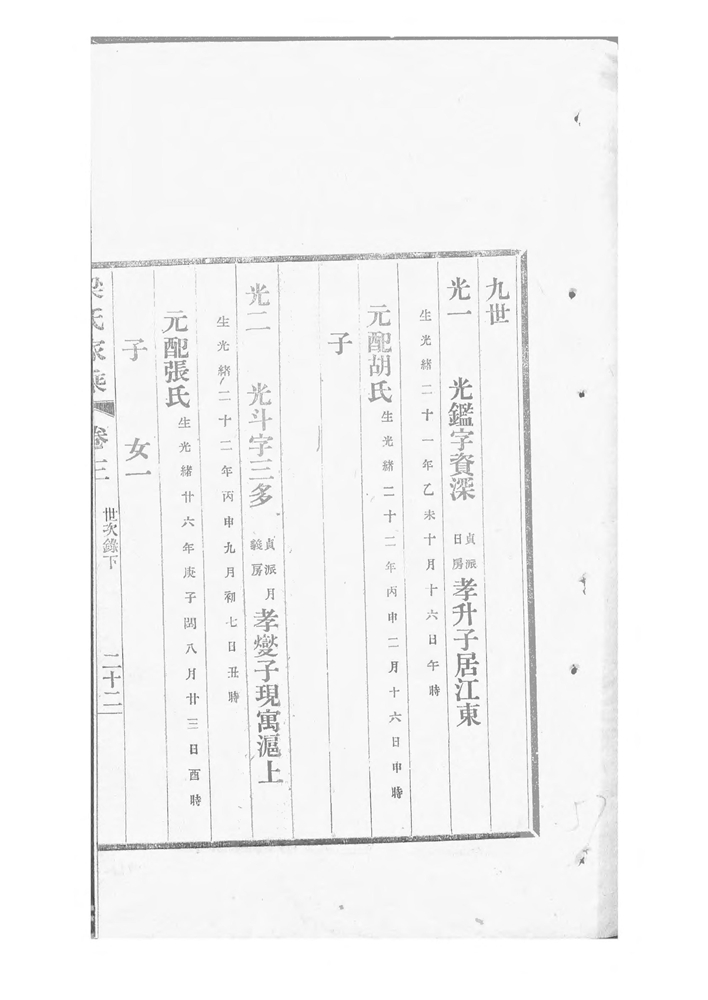 九世
光一　光鑑字資深 貞派日房 孝升子居江東
生光緒二十一年乙未十月十六日午時
元配胡氏 生光緒二十二年丙申二月十六日申時
子
光二　光斗字三多 貞派月義房 孝燮子現寓滬上
生光緒二十二年丙申九月初七日丑時
元配張氏 生光緒廿六年庚子閏八月廿三日酉時
子　女一
氏家乘 卷三 世次錄下 二十二